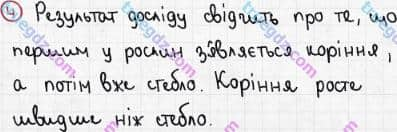 4) Результат досліду свідчить про те, що
першим у рослин з'являється коріння,
а потім вже стебло. Коріння росте
швидше ніж стебло.